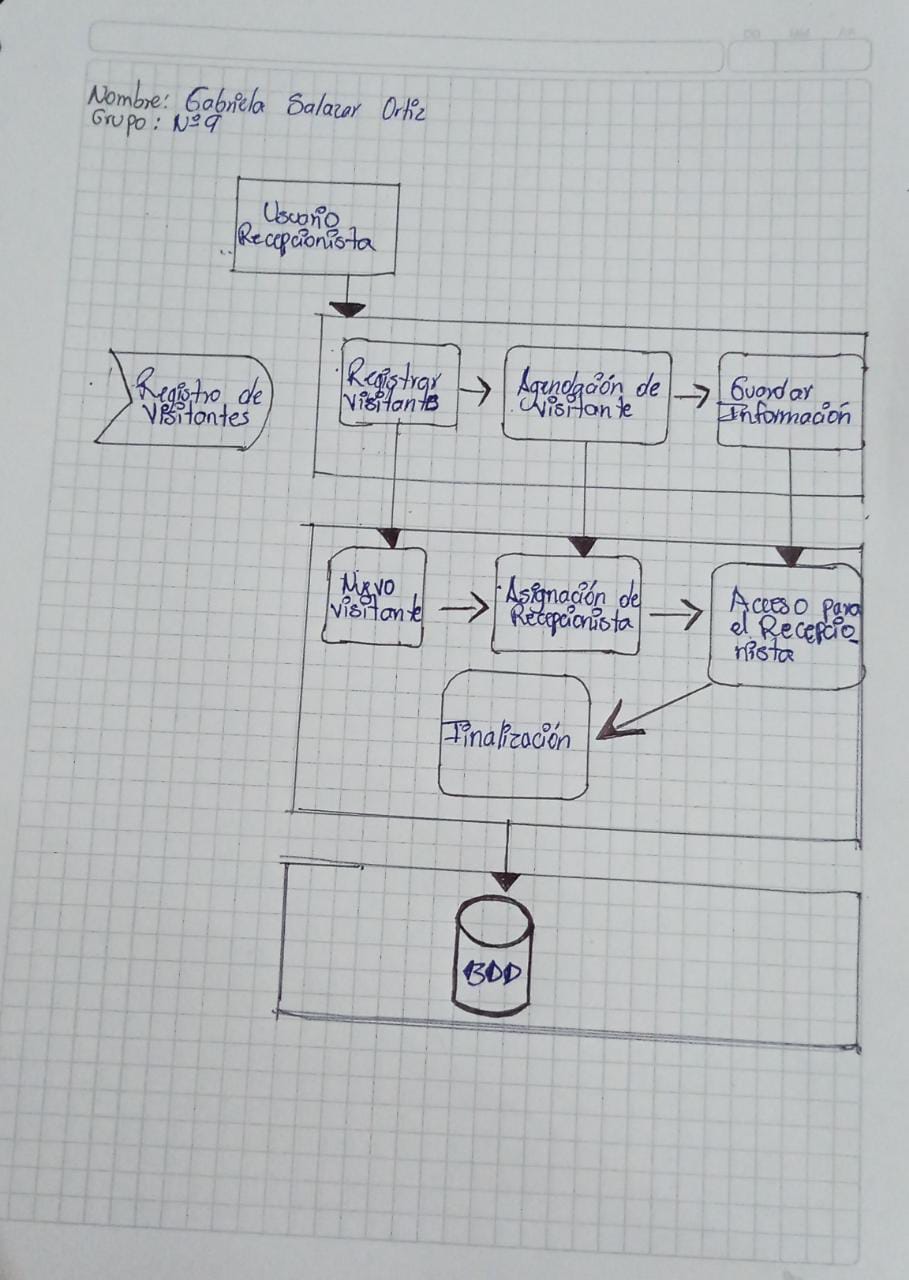 Nombre: Gabriela Salazar Ortiz
Grupo: Nº9
Usuario
Recepcionista
Registro de
Visitantes
Registrar
Visitante
Agendación de
Visitante
Guardar
Información
Nuevo
Visitante
Asignación de
Recepcionista
Acceso para
el Recepcio
nista
Finalización
BDD